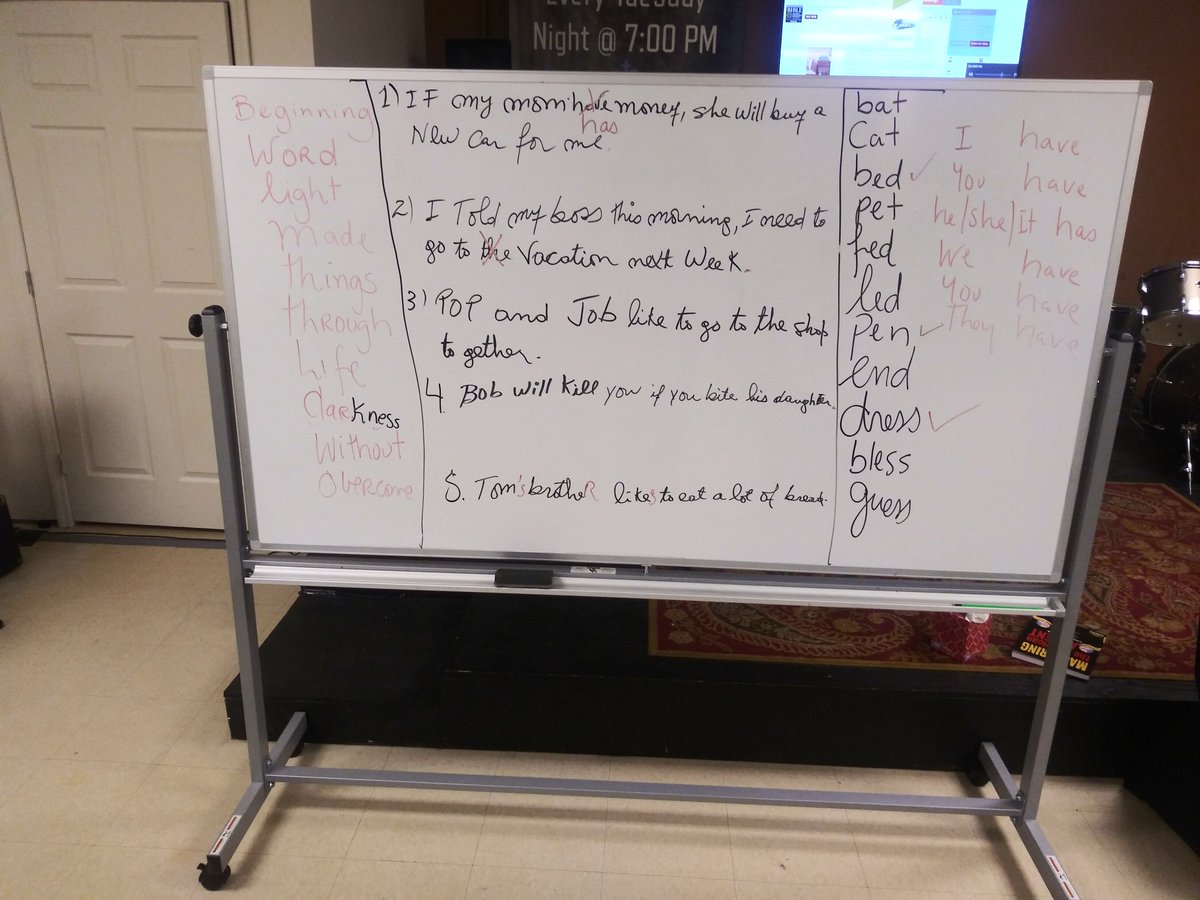 Every Tuesday
Night @ 7:00 PM
Beginning
Word
light
Made
things
through
Life
Darkness
Without
Overcome
1) IF my mom have money, she will buy a
has
New Car for me.
2) I Told my boss this morning, I need to
go to the Vacation next Week.
3) POP and Job like to go to the shop
to gether.
4 Bob will kill you if you bite his daughter.
5. Tom's brotheR likes to eat a lot of bread.
bat
Cat
bed ✓
pet
fed
led
pen ✓
end
dress ✓
bless
guess
I have
You have
he/she/It has
We have
You have
They have